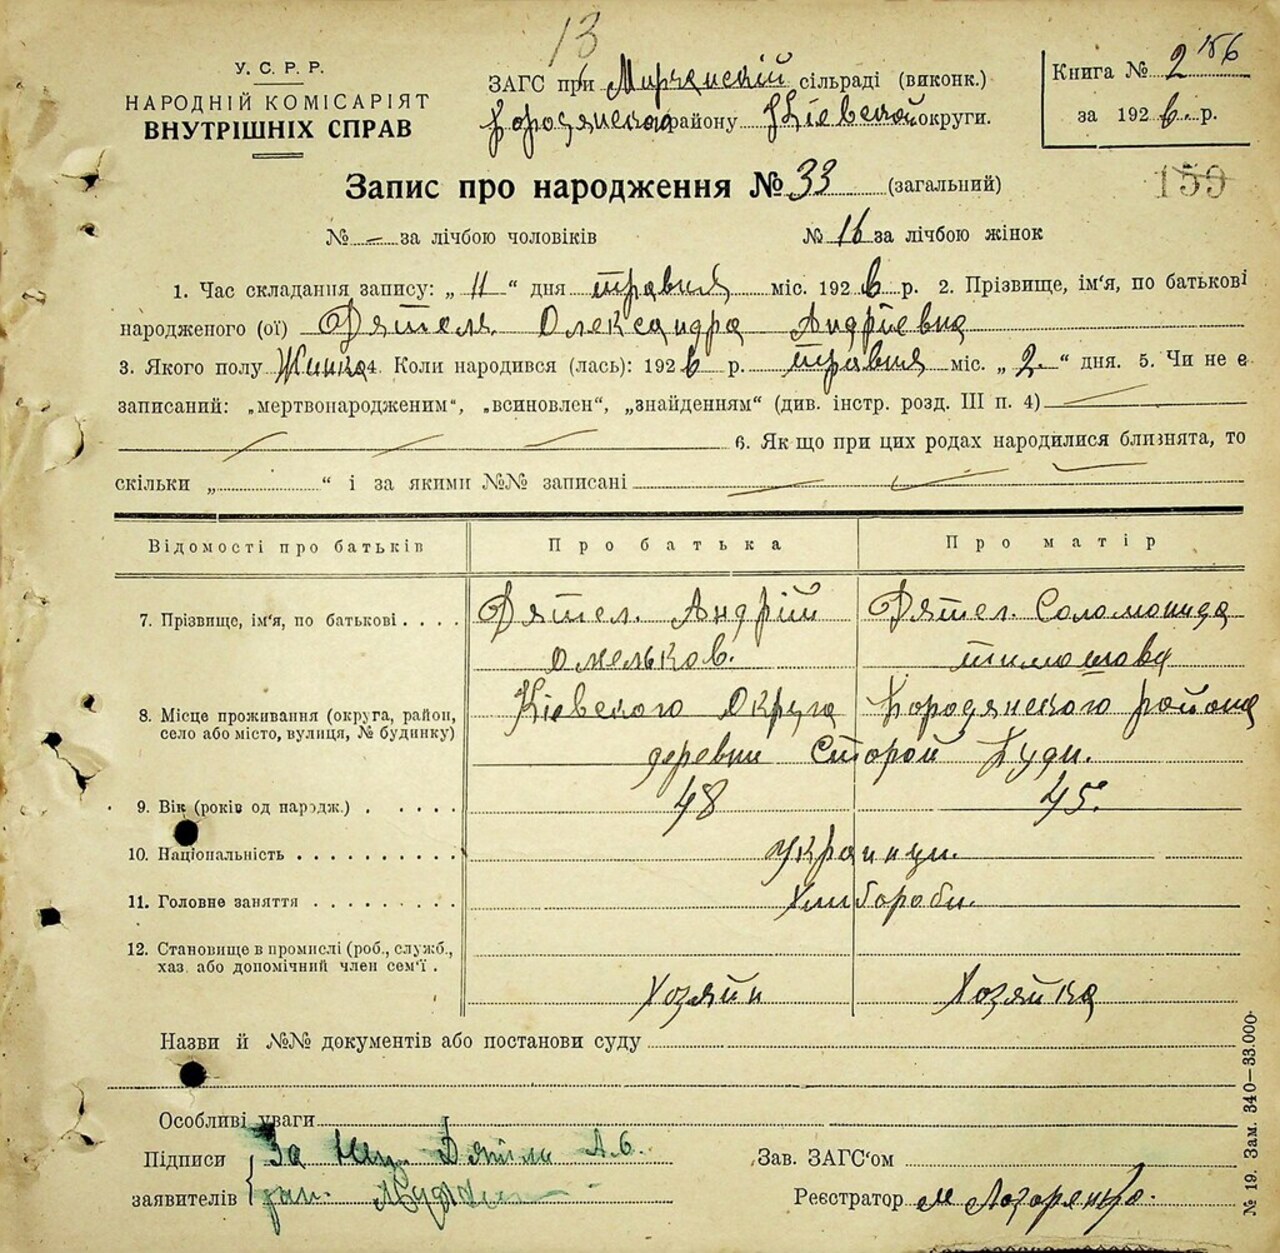 13
У. С. Р. Р.
НАРОДНІЙ КОМІСАРІЯТ
ВНУТРІШНІХ СПРАВ
ЗАГС при Мирчанскій сільраді (виконк.)
Бородянского району Кіевской округи.
Книга № 2 156
за 1926 р.
159
Запис про народження № 33 (загальний)
№ – за лічбою чоловіків № 16 за лічбою жінок
1. Час складання запису: „ 11 “ дня травня міс. 1926 р. 2. Прізвище, ім‘я, по батькові
народженого (ої) Дятель Олександра Андріевна
3. Якого полу Жинка 4. Коли народився (лась): 1926 р. травня міс. „ 2. “ дня. 5. Чи не є
записаний: „мертвонародженим“, „всиновлен“, „знайденням“ (див. інстр. розд. III п. 4)
6. Якщо при цих родах народилися близнята, то
скільки „ “ і за якими №№ записані
Відомості про батьків Про батька Про матір
7. Прізвище, ім‘я, по батькові . . . . Дятел. Андрій Дятел. Соломонида
Омельков. тимошова
8. Місце проживання (округа, район, село або місто, вулиця, № будинку) Кіевского Округа Бородянского района
деревни Старой Буди.
9. Вік (років од народж.) . . . . . 48 45.
10. Національність . . . . . . . . . . Украинци.
11. Головне заняття . . . . . . . . . Хлибороби.
12. Становище в промислі (роб., служб.,
хаз. або допомічний член сем‘ї .
Хозяйн Хозяйка
Назви й №№ документів або постанови суду
Особливі уваги
Підписи За Дятла А.
заявителів
Зав. ЗАГС‘ом
Реєстратор М Лазаренко.
№ 19. Зам. 340—33.000